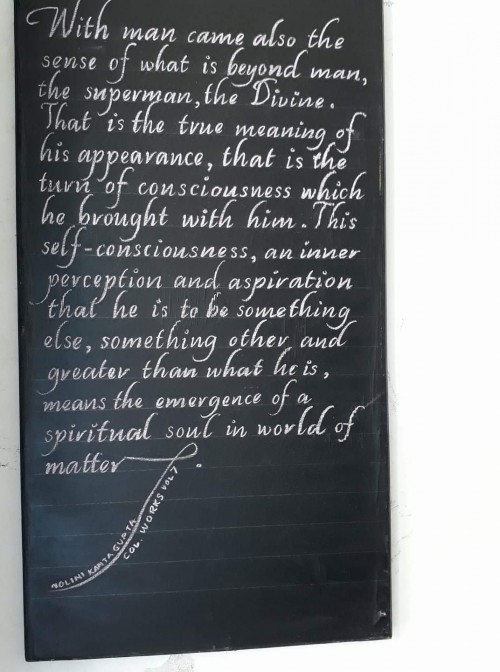 With man came also the
sense of what is beyond man,
the superman, the Divine.
That is the true meaning of
his appearance, that is the
turn of consciousness which
he brought with him. This
self-consciousness, an inner
perception and aspiration
that he is to be something
else, something other and
greater than what he is,
means the emergence of a
spiritual soul in world of
matter.
NOLINI KANTA GUPTA
COL. WORKS VOL 7